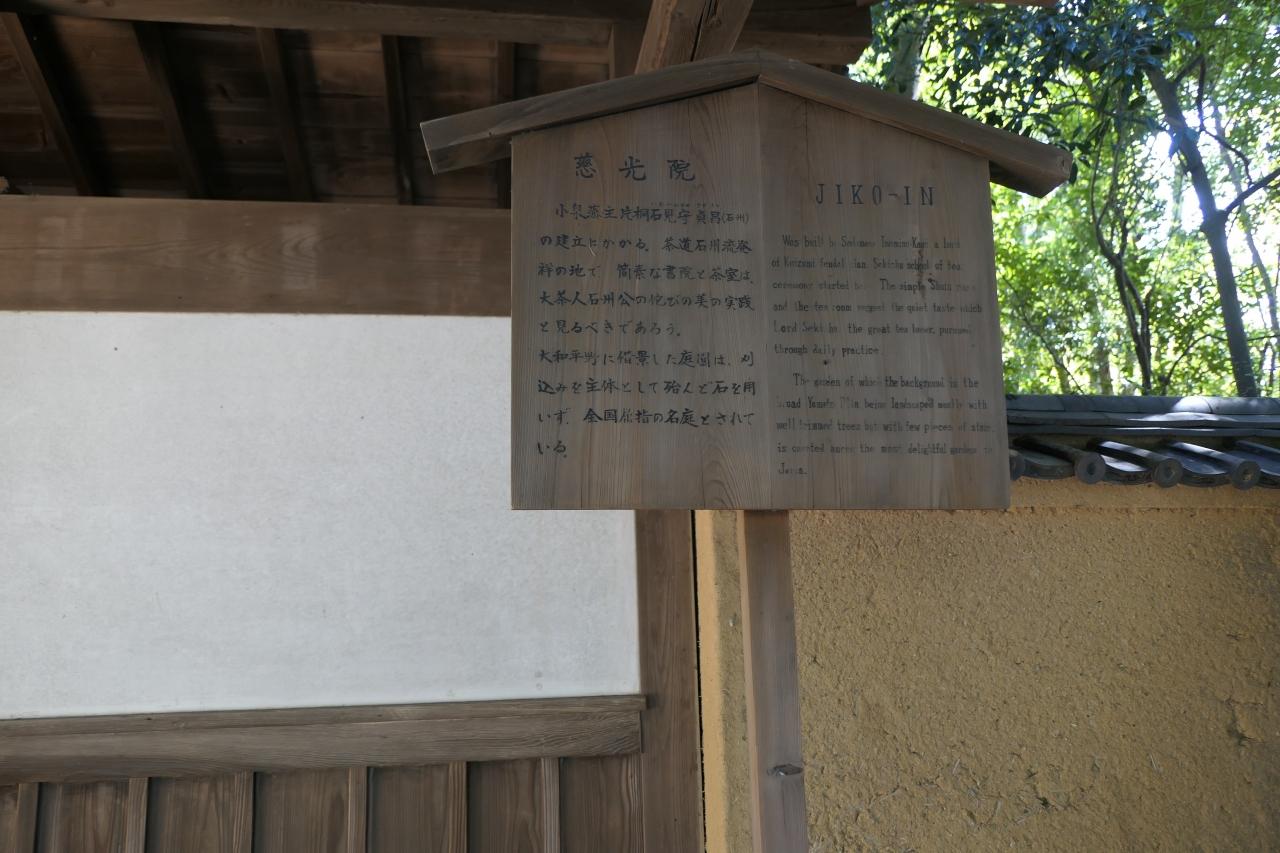 慈光院
小泉藩主片桐石見守貞昌(石州)
の建立にかかる。茶道石州流発
祥の地で 簡素な書院と茶室は、
大茶人石州公の侘びの美の実践
と見るべきであろう。
大和平野に借景した庭園は、刈
込みを主体として殆んど石を用
いず 全国屈指の名庭とされて
いる。
JIKO-IN
Was built by a lord
of Koizumi feudal clan. school of tea
ceremony started The simple
and the tea room suggest the quiet taste which
Lord the great tea lover, pursued
through daily practice.
The garden of which the background is the
being landscaped mostly with
well trimmed trees but with few pieces of
is counted the most delightful gardens in